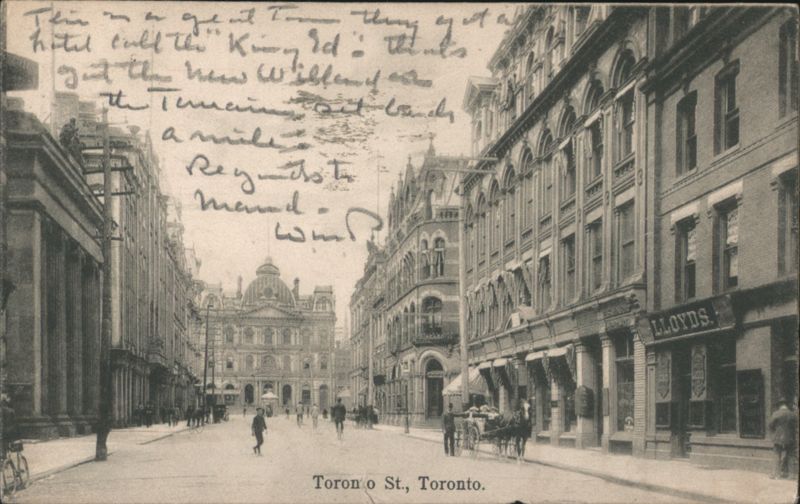 This is a great Town they got a
hotel call the "King Ed". thats
got the New Willard
the
a mile.
Regards to
Maud.
Will
LLOYDS.
Toron o St., Toronto.